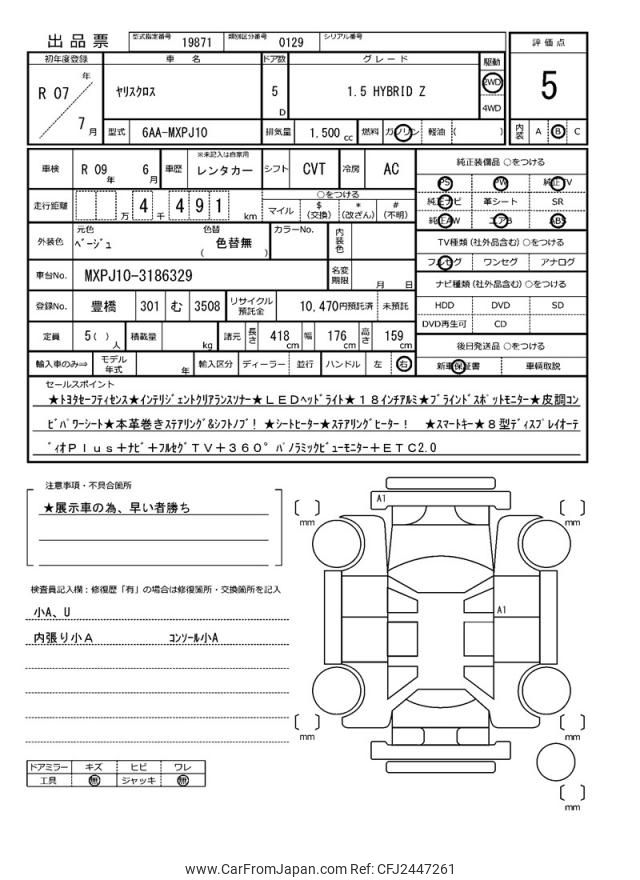 出品票 型式指定番号 19871 類別区分番号 0129 シリアル番号
評価点
5
内装 A B C
初年度登録 車名 ドア数 グレード 駆動
R 07 年 7 月
ヤリスクロス 5 D 1.5 HYBRID Z 2WD 4WD
型式 6AA-MXPJ10 排気量 1.500 cc 燃料 ガソリン 軽油 ( )
車検 R 09 年 6 月 車歴 ※未記入は自家用 レンタカー シフト CVT 冷房 AC
走行距離 万 4 千 4 9 1 km
○をつける
マイル $ (交換) * (改ざん) # (不明)
外装色 元色 ベージュ 色替 ( 色替無 ) カラーNo. 内装色
車台No. MXPJ10-3186329 名変期限 月 日
登録No. 豊橋 301 む 3508 リサイクル預託金 10.470円預託済 未預託
定員 5( ) 人 積載量 kg 諸元 長さ 418 cm 幅 176 cm 高さ 159 cm
輸入車のみ⇨ モデル年式 年 輸入区分 ディーラー 並行 ハンドル 左 右
純正装備品 ○をつける
PS PW 純正TV
純正ナビ 革シート SR
純正AW エアB ABS
TV種類 (社外品含む) ○をつける
フルセグ ワンセグ アナログ
ナビ種類 (社外品含む) ○をつける
HDD DVD SD
DVD再生可 CD
後日発送品 ○をつける
新車保証書 車輌取説
セールスポイント
★トヨタセーフティセンス★インテリジェントクリアランスソナー★LEDヘッドライト★18インチアルミ★ブラインドスポットモニター★皮調コン
ビパワーシート★本革巻きステアリング&シフトノブ! ★シートヒーター★ステアリングヒーター! ★スマートキー★8型ディスプレイオーデ
ィオPlus+ナビ+フルセグTV+360°パノラミックビューモニター+ETC2.0
注意事項・不具合箇所
★展示車の為、早い者勝ち
検査員記入欄:修復歴「有」の場合は修復箇所・交換箇所を記入
小A、U
内張り小A コンソール小A
ドアミラー キズ ヒビ ワレ
工具 無 ジャッキ 無
A1
A1
mm
mm
mm
mm
mm
www.CarFromJapan.com Ref: CFJ2447261